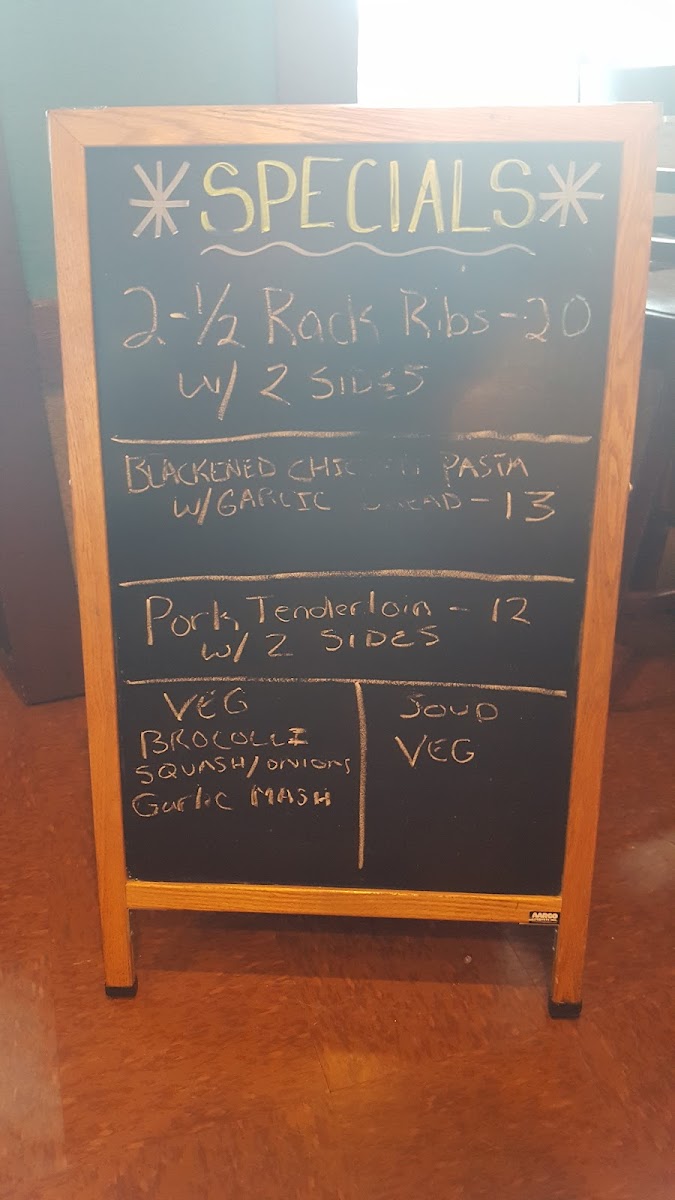 *SPECIALS*
2-1/2 Rack Ribs-20
W/ 2 SIDES
BLACKENED CHICKEN PASTA
W/GARLIC BREAD-13
Pork Tenderloin - 12
W/ 2 SIDES
VEG
BROCOLLI
SQUASH/ONIONS
Garlic MASH
SOUP
VEG
AARCO